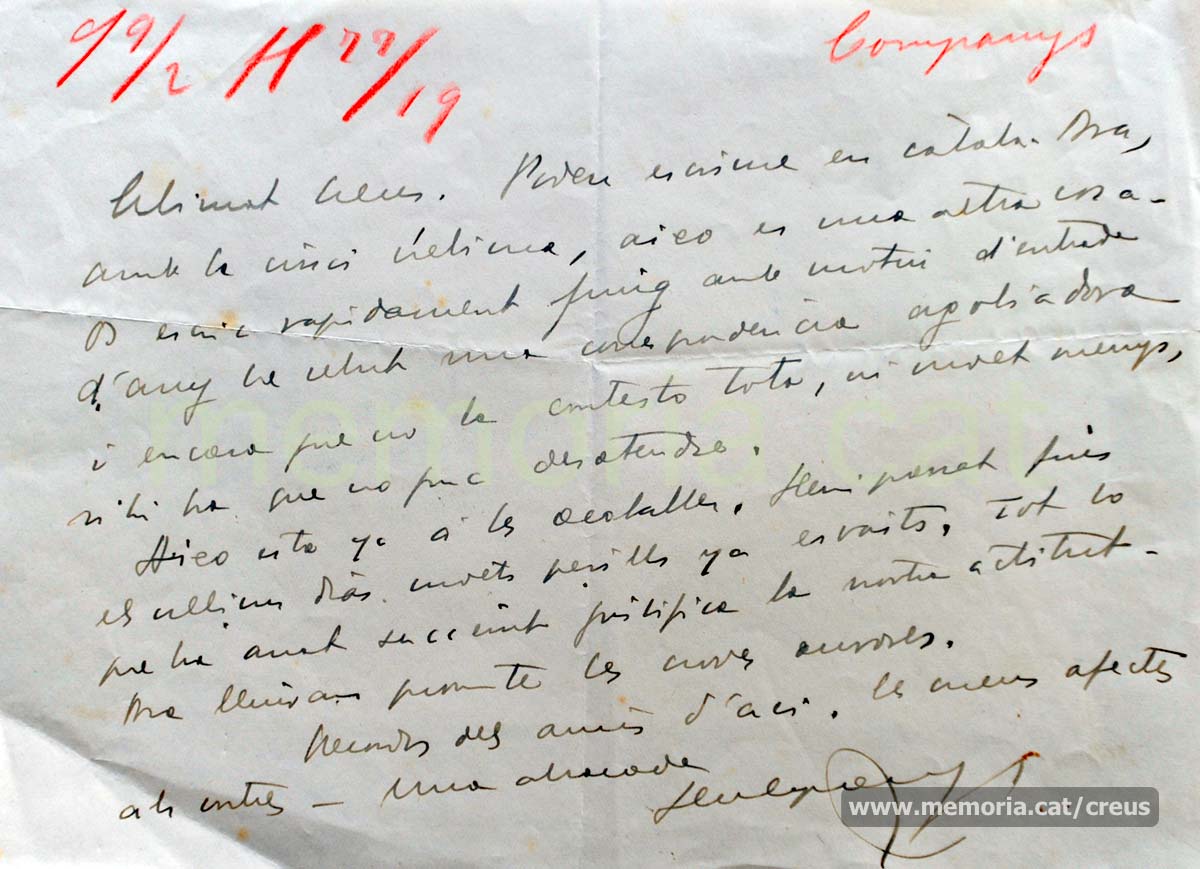 99/2 H 77/19
Companys
Estimat Creus. Podeu escriure en català. Ara,
amb la crisi última, aixo es una altra cosa -
Os escric rapidament puig amb motiu d'entrada
d'any he rebut una correspondencia agotiadora
i encara que no la contesto tota, ni molt menys,
n'hi ha que no puc desatendre.
Aixo esta ya a les acaballes. Hem passat fins
els ultims dias molts perills ya esvaits. Tot lo
que ha anat succeint justifica la nostra actitut -
Ara lluiran promte les noves aurores.
Recordos dels amics d'aci. les meus afectes
als vostres - Una abraçada
memoria.cat
www.memoria.cat/creus